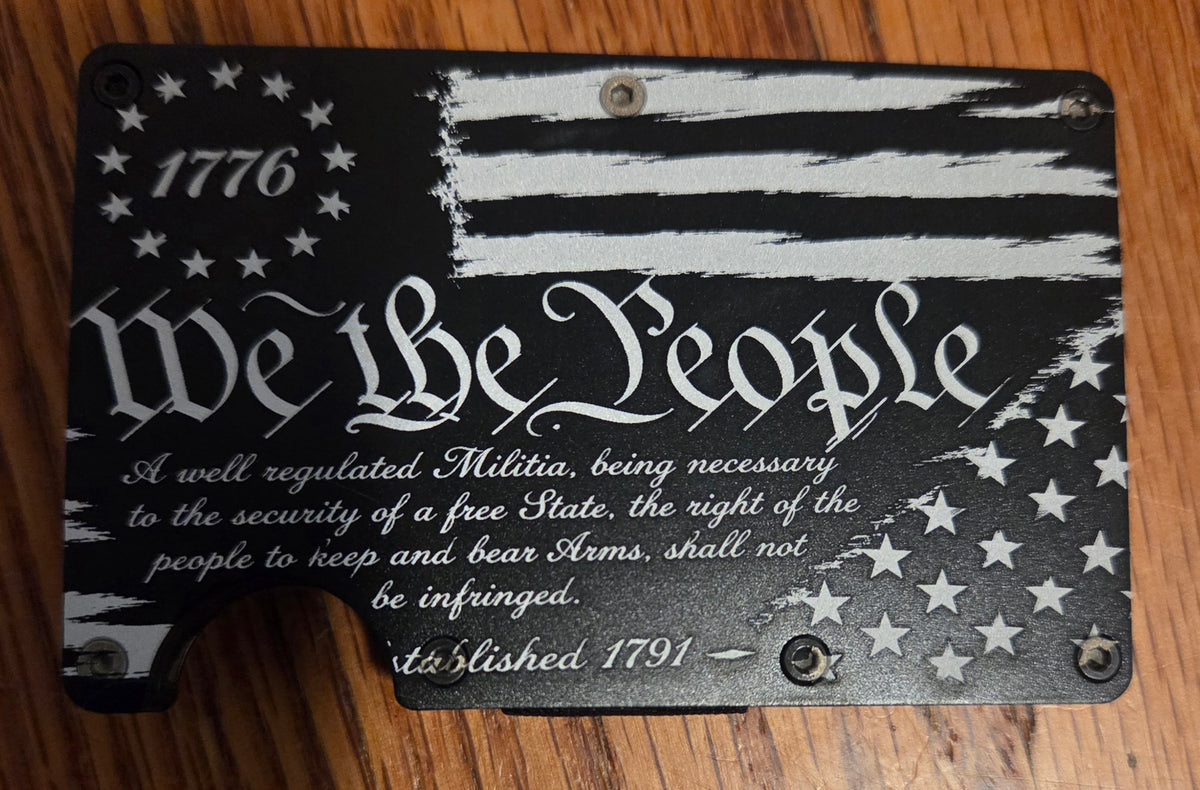 1776
We the People
A well regulated Militia, being necessary
to the security of a free State, the right of the
people to keep and bear Arms, shall not
be infringed.
stablished 1791